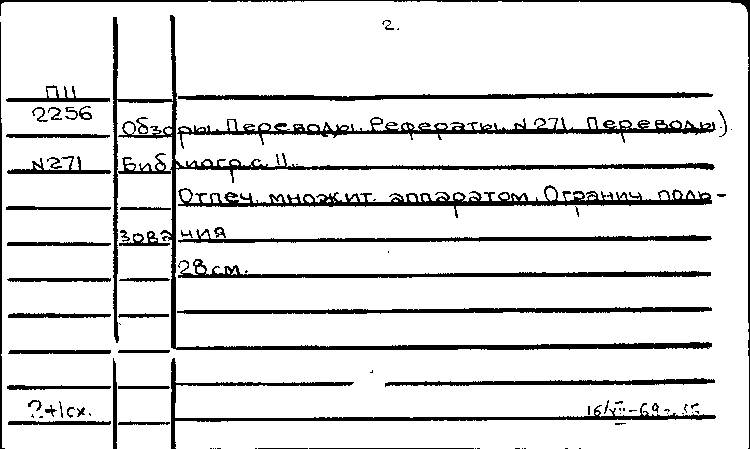 2.
П11
2256
Обзоры. Переводы. Рефераты. N271. Переводы).
N271 Библиогр. с. 11.
Отпеч. множит. аппаратом. Огранич. поль-
зования
28 см.
2+1сх.
16/XII-69г.